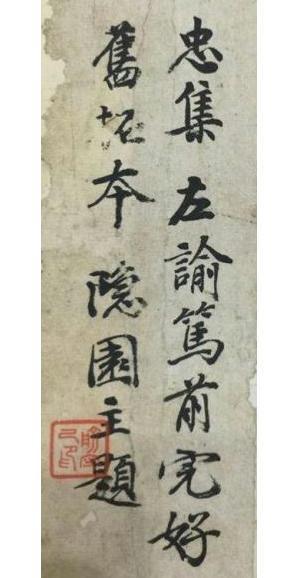 忠集左諭篤前完好
舊拓本隱園主題